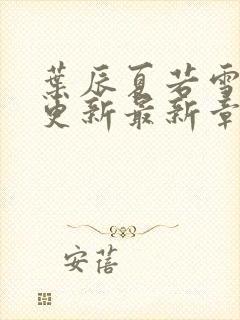 葉辰夏若雪
更新最新章
安蓓